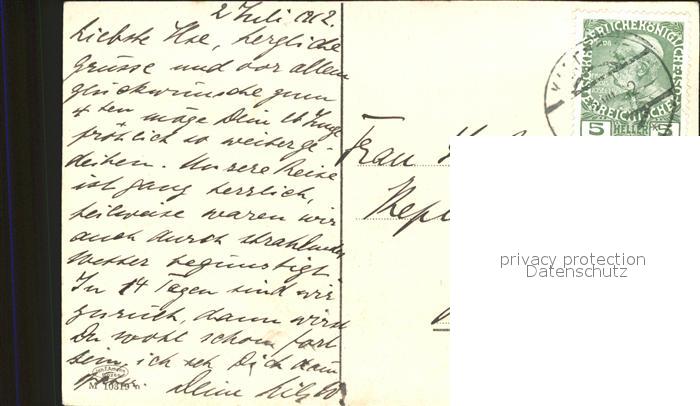 2 Juli 1912.
Liebste Ilse, herzliche
Grüsse und vor allem
Glückwünsche zum
4ten möge Dein
fröhlich so weiterge-
deihen. Unsere Reise
ist ganz herrlich,
teilweise waren wir
auch durch strahlendes
Wetter begünstigt.
In 14 Tagen sind wir
zurück, dann wirst
Du wohl schon fort
sein, ich seh Dich kaum
Deine
M 10319 n.
Frau
5 HELLER 5
privacy protection
Datenschutz